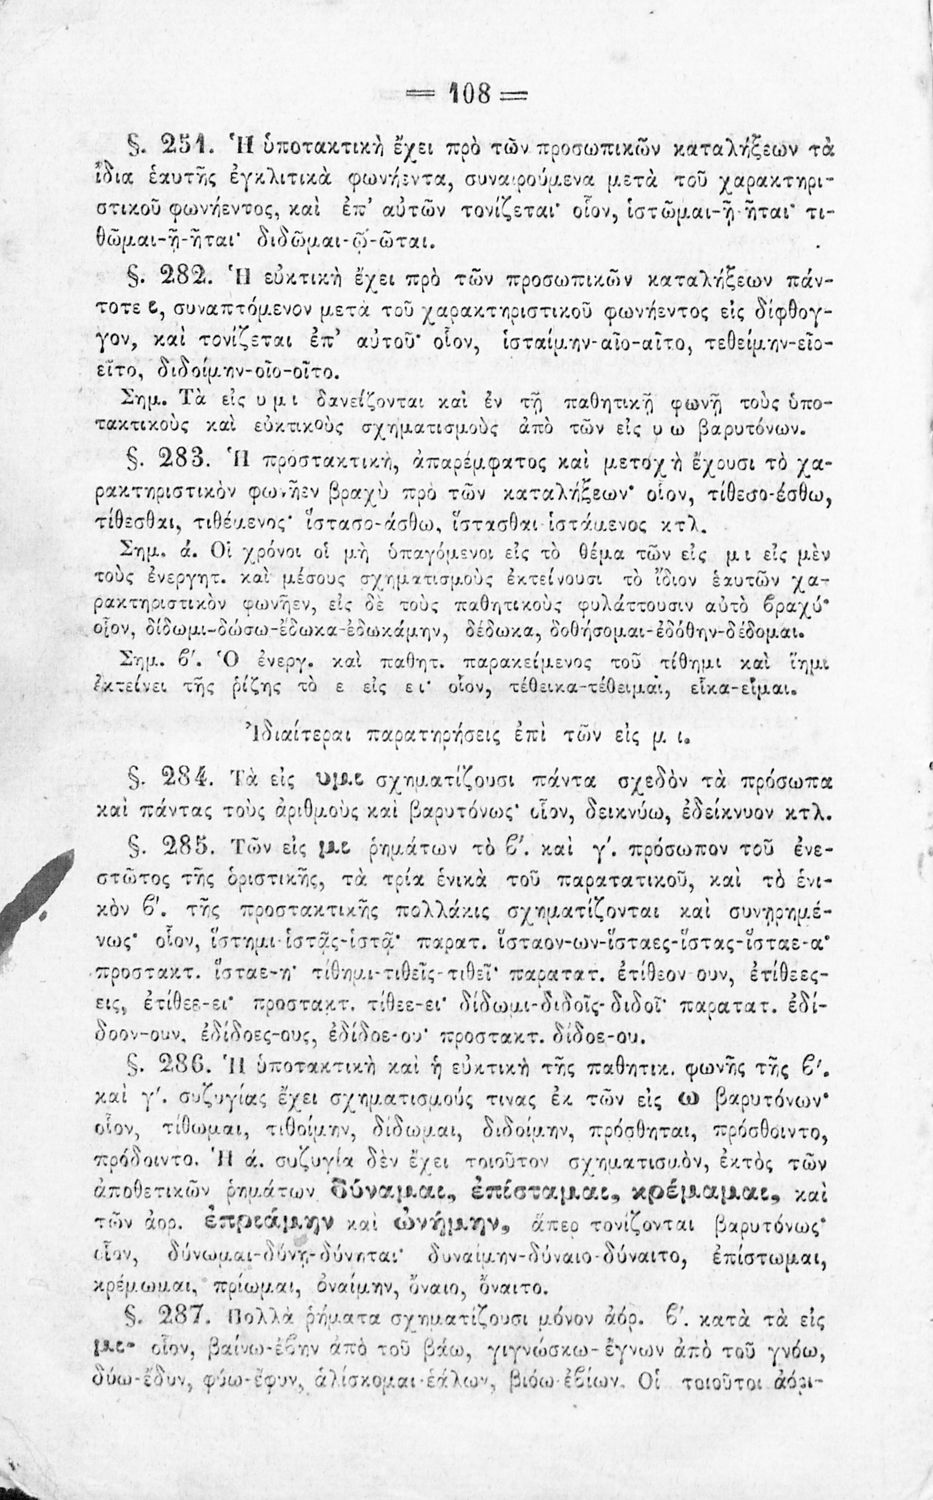 = 108 =
§. 251. Ἡ ὑποτακτικὴ ἔχει πρὸ τῶν προσωπικῶν καταλήξεων τὰ
ἴδια ἑαυτῆς ἐγκλιτικὰ φωνήεντα, συναιρούμενα μετὰ τοῦ χαρακτηρι-
στικοῦ φωνήεντος, καὶ ἐπ’ αὐτῶν τονίζεται· οἷον, ἱστῶμαι-ῇ-ῆται· τι-
θῶμαι-ῇ-ῆται· διδῶμαι-ῷ-ῶται.
§. 282. Ἡ εὐκτικὴ ἔχει πρὸ τῶν προσωπικῶν καταλήξεων πάν-
τοτε ι, συναπτόμενον μετὰ τοῦ χαρακτηριστικοῦ φωνήεντος εἰς δίφθογ-
γον, καὶ τονίζεται ἐπ’ αὐτοῦ· οἷον, ἱσταίμην-αῖο-αῖτο, τεθείμην-εῖο-
εῖτο, διδοίμην-οῖο-οῖτο.
Σημ. Τὰ εἰς υ μ ι δανείζονται καὶ ἐν τῇ παθητικῇ φωνῇ τοὺς ὑπο-
τακτικοὺς καὶ εὐκτικοὺς σχηματισμοὺς ἀπὸ τῶν εἰς υ ω βαρυτόνων.
§. 283. Ἡ προστακτικὴ, ἀπαρέμφατος καὶ μετοχὴ ἔχουσι τὸ χα-
ρακτηριστικὸν φωνῆεν βραχὺ πρὸ τῶν καταλήξεων· οἷον, τίθεσο-έσθω,
τίθεσθαι, τιθέμενος· ἵστασο-άσθω, ἵστασθαι-ἱστάμενος κτλ.
Σημ. ά. Οἱ χρόνοι οἱ μὴ ὑπαγόμενοι εἰς τὸ θέμα τῶν εἰς μ ι εἰς μὲν
τοὺς ἐνεργητ. καὶ μέσους σχηματισμοὺς ἐκτείνουσι τὸ ἴδιον ἑαυτῶν χα-
ρακτηριστικὸν φωνῆεν, εἰς δὲ τοὺς παθητικοὺς φυλάττουσιν αὐτὸ βραχύ·
οἷον, δίδωμι-δώσω-ἔδωκα-ἐδωκάμην, δέδωκα, δοθήσομαι-ἐδόθην-δέδομαι.
Σημ. β΄. Ὁ ἐνεργ. καὶ παθητ. παρακείμενος τοῦ τίθημι καὶ ἵημι
ἐκτείνει τῆς ῥίζης τὸ ε εἰς ε ι· οἷον, τέθεικα-τέθειμαι, εἷκα-εἷμαι.
Ἰδιαίτεραι παρατηρήσεις ἐπὶ τῶν εἰς μ ι.
§. 284. Τὰ εἰς υμι σχηματίζουσι πάντα σχεδὸν τὰ πρόσωπα
καὶ πάντας τοὺς ἀριθμοὺς καὶ βαρυτόνως· οἷον, δεικνύω, ἐδείκνυον κτλ.
§. 285. Τῶν εἰς μι ῥημάτων τὸ β΄. καὶ γ΄. πρόσωπον τοῦ ἐνε-
στῶτος τῆς ὁριστικῆς, τὰ τρία ἑνικὰ τοῦ παρατατικοῦ, καὶ τὸ ἑνι-
κὸν β΄. τῆς προστακτικῆς πολλάκις σχηματίζονται καὶ συνῃρημέ-
νως· οἷον, ἵστημι-ἱστᾷς-ἱστᾷ· παρατ. ἵσταον-ων-ἵσταες-ἵστας-ἵσταε-α·
προστακτ. ἵσταε-η· τίθημι-τιθεῖς-τιθεῖ· παρατατ. ἐτίθεον-ουν, ἐτίθεες-
εις, ἐτίθεε-ει· προστακτ. τίθεε-ει· δίδωμι-διδοῖς-διδοῖ· παρατατ. ἐδί-
δοον-ουν, ἐδίδοες-ους, ἐδίδοε-ου· προστακτ. δίδοε-ου.
§. 286. Ἡ ὑποτακτικὴ καὶ ἡ εὐκτικὴ τῆς παθητικ. φωνῆς τῆς β΄.
καὶ γ΄. συζυγίας ἔχει σχηματισμούς τινας ἐκ τῶν εἰς ω βαρυτόνων·
οἷον, τίθωμαι, τιθοίμην, δίδωμαι, διδοίμην, πρόσθηται, πρόσθοιντο,
πρόδοιντο. Ἡ ά. συζυγία δὲν ἔχει τοιοῦτον σχηματισμὸν, ἐκτὸς τῶν
ἀποθετικῶν ῥημάτων δύναμαι, ἐπίσταμαι, κρέμαμαι, καὶ
τῶν ἀορ. ἐπριάμην καὶ ὠνήμην, ἅπερ τονίζονται βαρυτόνως·
οἷον, δύνωμαι-δύνῃ-δύνηται· δυναίμην-δύναιο-δύναιτο, ἐπίστωμαι,
κρέμωμαι, πρίωμαι, ὀναίμην, ὄναιο, ὄναιτο.
§. 287. Πολλὰ ῥήματα σχηματίζουσι μόνον ἀόρ. β΄. κατὰ τὰ εἰς
μι· οἷον, βαίνω-ἔβην ἀπὸ τοῦ βάω, γιγνώσκω-ἔγνων ἀπὸ τοῦ γνόω,
δύω-ἔδυν, φύω-ἔφυν, ἁλίσκομαι-ἑάλων, βιόω-ἐβίων. Οἱ τοιοῦτοι ἀόρι-